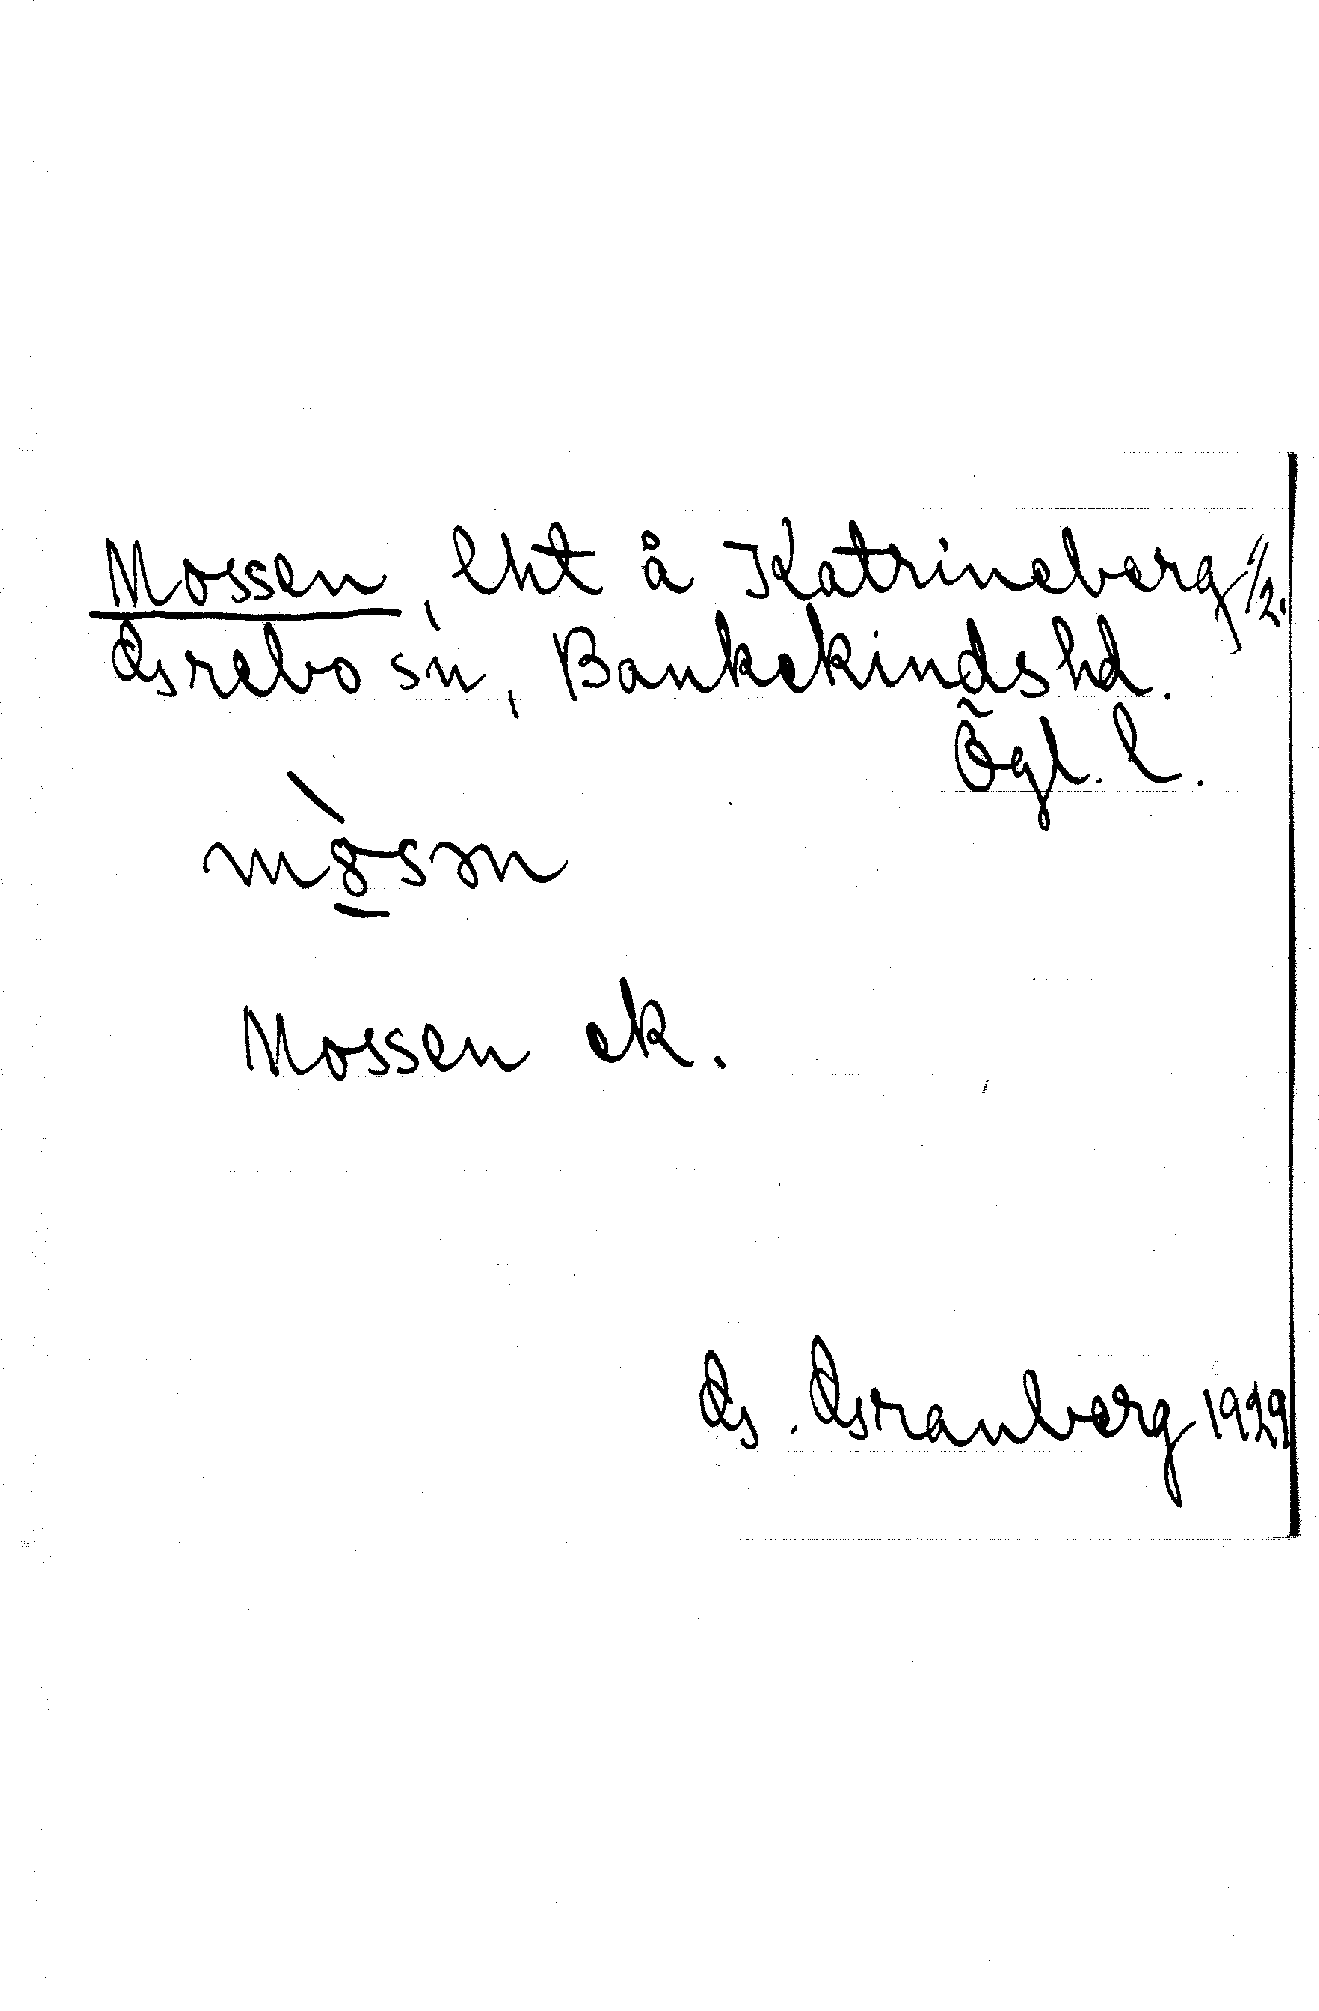 Mossen, lht å Katrineberg 1/2.
Grebo sn, Bankekindshd.
Ögl. l.
mòsən
Mossen ek.
G. Granberg 1929